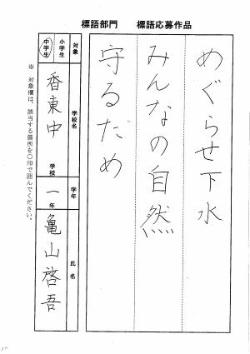 標語部門　標語応募作品
めぐらせ下水
みんなの自然
守るため
対象
小学生
中学生
学校名
香東中
学校
学年
一年
氏名
亀山啓吾
※ 対象欄は、該当する箇所を〇印で囲んでください。